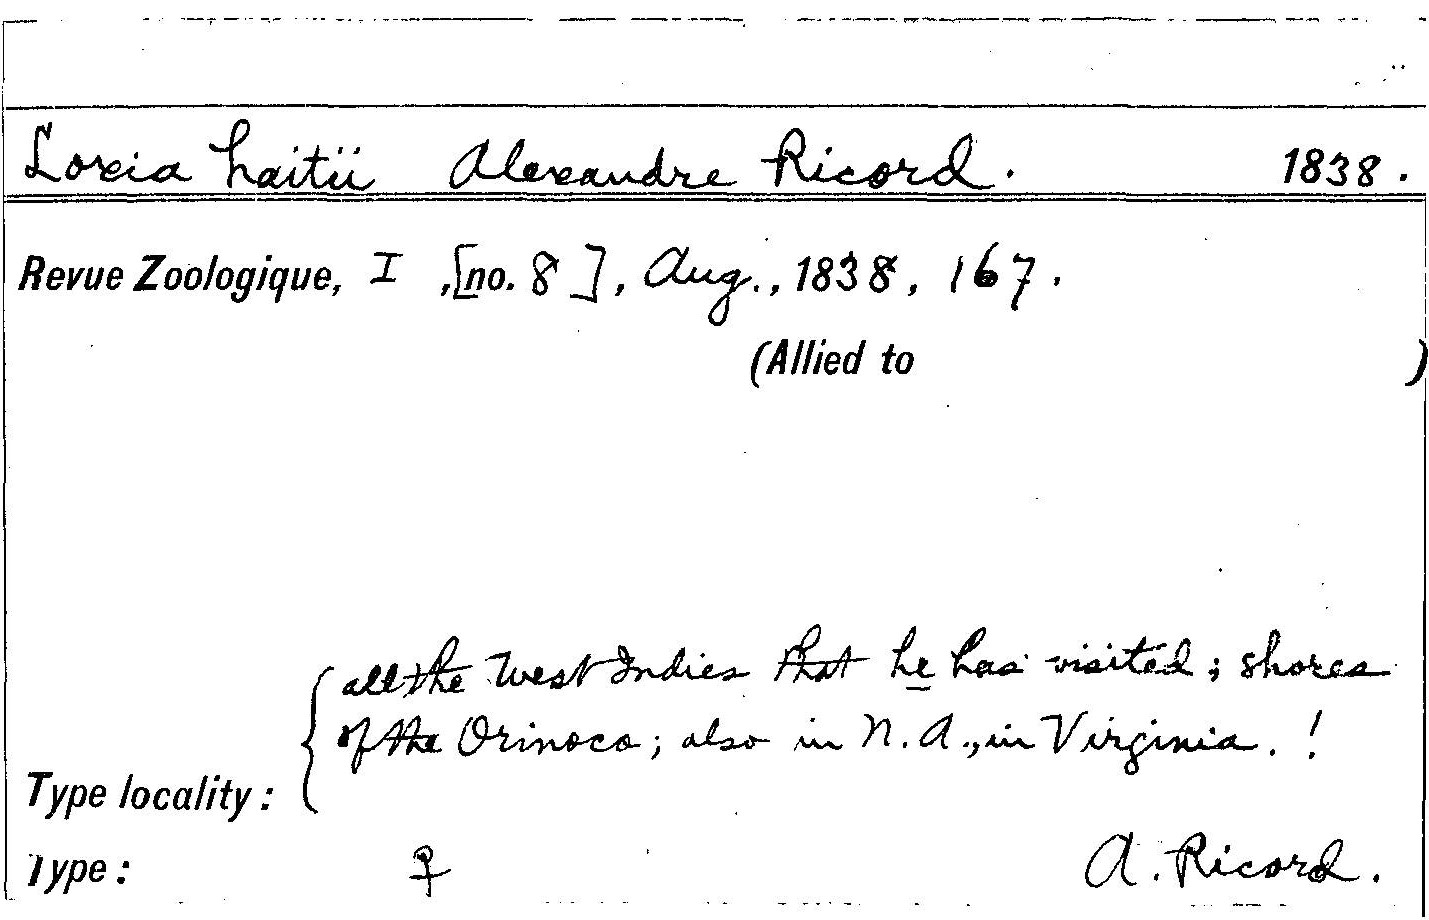 Loxia haitii Alexandre Ricord. 1838.
Revue Zoologique, I, [no. 8], Aug., 1838, 167.
(Allied to )
all the West Indies that he has visited; shores
of the Orinoco; also in N. A., in Virginia. !
Type locality:
Type: ♀ A. Ricord.